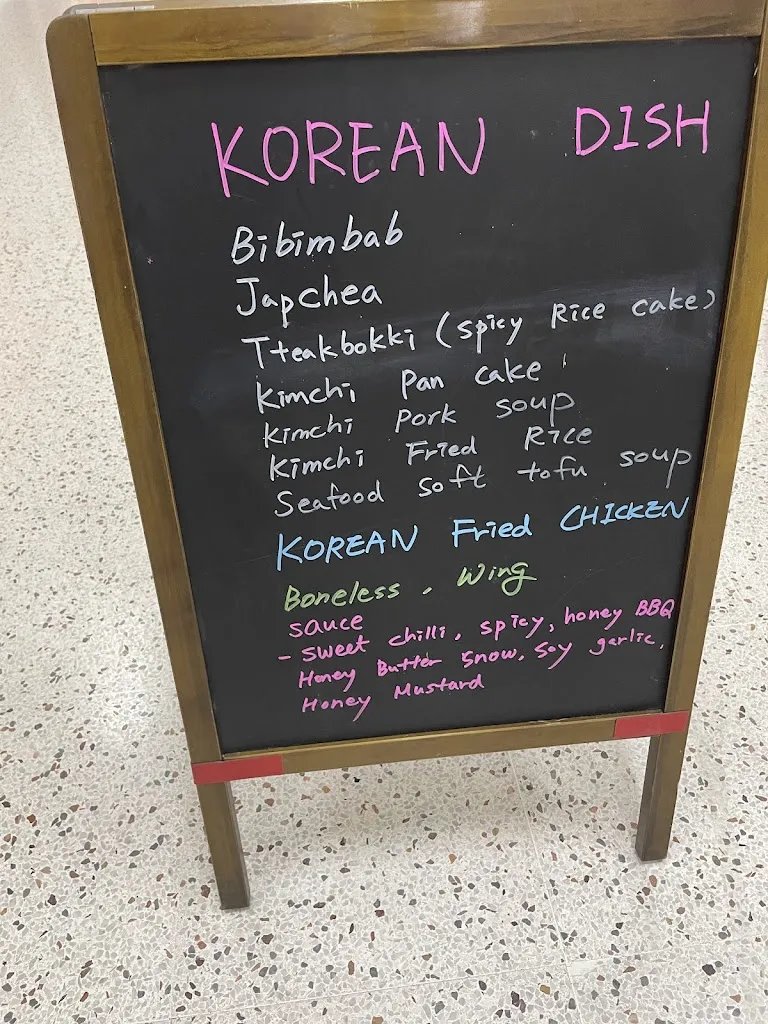 KOREAN DISH
Bibimbab
Japchea
Tteakbokki (spicy Rice cake)
Kimchi Pan cake
Kimchi Pork soup
Kimchi Fried Rice
Seafood soft tofu soup
KOREAN Fried CHICKEN
Boneless, Wing
sauce
- sweet chilli, spicy, honey BBQ
Honey Butter snow, Soy garlic,
Honey Mustard